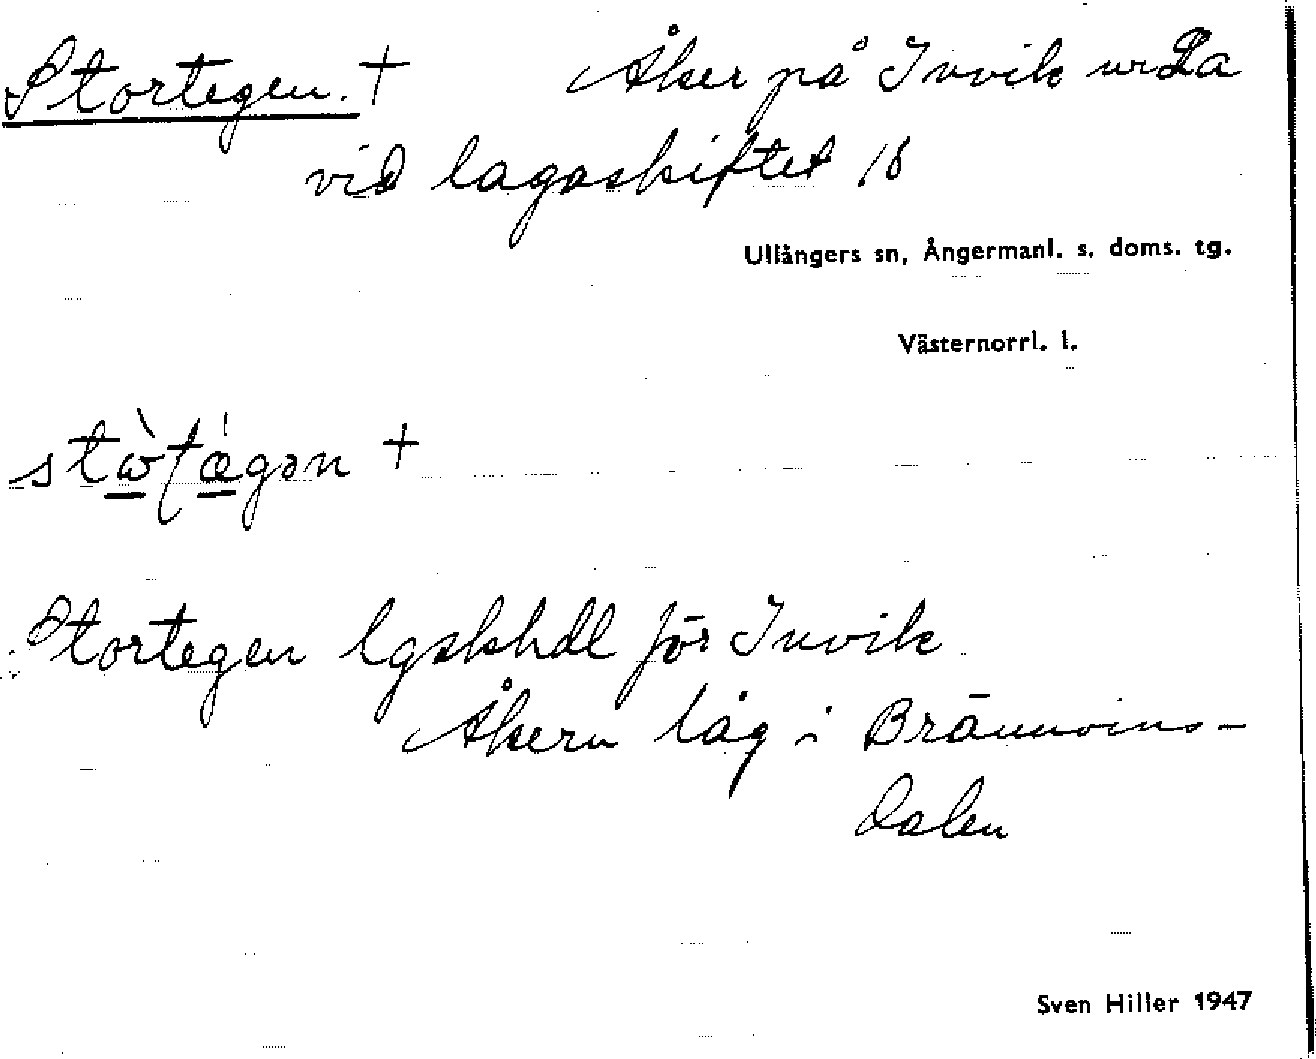 Stortegen. + Åker på Invik nr 2a
vid lagaskiftet 18
Ullångers sn, Ångermanl. s. doms. tg.
Västernorrl. l.
+
Stortegen lgskhdl för Invik
Åkern låg i Brännvins-
dalen
Sven Hiller 1947